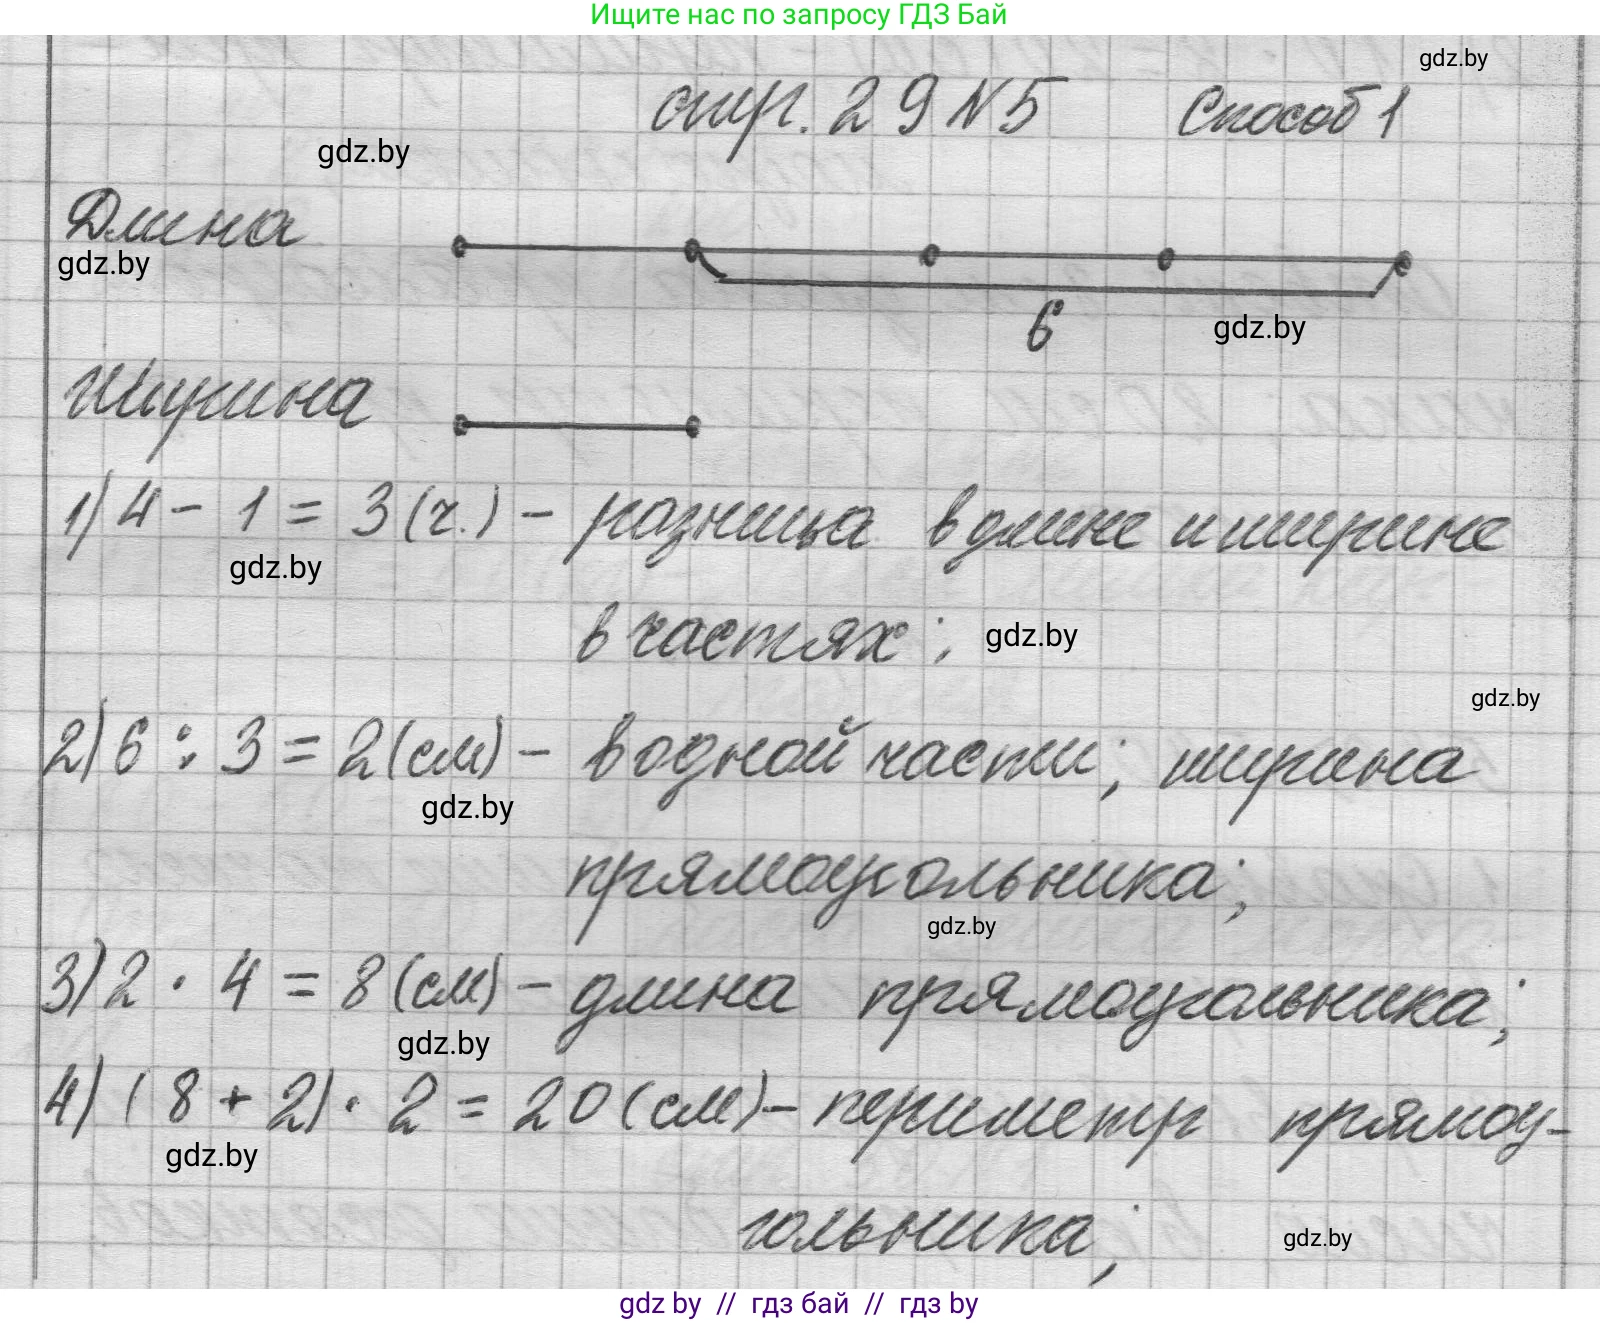 Ищите нас по запросу ГДЗ Бай
gdz.by
стр. 29 №5 Способ 1
gdz.by
Длина
gdz.by
6
gdz.by
Ширина
1) 4 - 1 = 3 (ч.) - разница в длине и ширине
gdz.by
в частях;
gdz.by
gdz.by
2) 6 : 3 = 2 (см) - в одной части; ширина
gdz.by
прямоугольника;
gdz.by
3) 2 · 4 = 8 (см) - длина прямоугольника;
gdz.by
4) (8 + 2) · 2 = 20 (см) - периметр прямоу-
gdz.by
гольника;
gdz.by
gdz by // гдз бай // гдз by